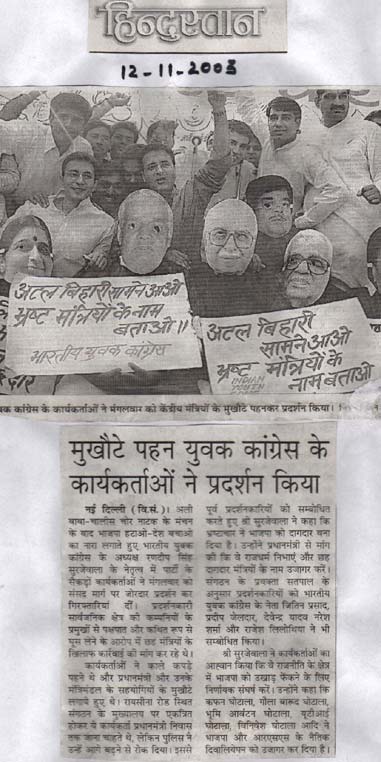 हिन्दुस्तान
12-11-2003
अटल बिहारी सामने आओ
भ्रष्ट मंत्रियों के नाम
बताओ।।
भारतीय युवक कांग्रेस
अटल बिहारी
सामने आओ
भ्रष्ट मंत्रियों के
नाम बताओ
INDIAN
YOUTH
के कार्यकर्ताओं ने मंगलवार को केंद्रीय मंत्रियों के मुखौटे पहनकर प्रदर्शन किया।
मुखौटे पहन युवक कांग्रेस के
कार्यकर्ताओं ने प्रदर्शन किया
नई दिल्ली (वि.सं.)। अली
बाबा-चालीस चोर नाटक के मंचन
के बाद भाजपा हटाओ-देश बचाओ
का नारा लगाते हुए भारतीय युवक
कांग्रेस के अध्यक्ष रणदीप सिंह
सुरजेवाला के नेतृत्व में पार्टी के
सैकड़ों कार्यकर्ताओं ने मंगलवार को
संसद मार्ग पर जोरदार प्रदर्शन कर
गिरफ्तारियां दीं। प्रदर्शनकारी
सार्वजनिक क्षेत्र की कम्पनियों के
प्रमुखों से पक्षपात और कथित रूप से
घूस लेने के आरोप में छह मंत्रियों के
खिलाफ कार्रवाई की मांग कर रहे थे।
कार्यकर्ताओं ने काले कपड़े
पहने थे और प्रधानमंत्री और उनके
मंत्रिमंडल के सहयोगियों के मुखौटे
लगाये हुए थे। रायसीना रोड स्थित
संगठन के मुख्यालय पर एकत्रित
होकर ये कार्यकर्ता प्रधानमंत्री निवास
तक जाना चाहते थे, लेकिन पुलिस ने
उन्हें आगे बढ़ने से रोक दिया। इससे
पूर्व प्रदर्शनकारियों को सम्बोधित
करते हुए श्री सुरजेवाला ने कहा कि
भ्रष्टाचार ने भाजपा को दागदार बना
दिया है। उन्होंने प्रधानमंत्री से मांग
की कि वे राजधर्म निभाएं और छह
दागदार मंत्रियों के नाम उजागर करें।
संगठन के प्रवक्ता सतपाल के
अनुसार प्रदर्शनकारियों को भारतीय
युवक कांग्रेस के नेता जितिन प्रसाद,
प्रदीप जेलदार, देवेन्द्र यादव नरेश
शर्मा और राजेश लिलोथिया ने भी
सम्बोधित किया।
श्री सुरजेवाला ने कार्यकर्ताओं का
आह्वान किया कि वे राजनीति के क्षेत्र
में भाजपा को उखाड़ फेंकने के लिए
निर्णायक संघर्ष करें। उन्होंने कहा कि
कफन घोटाला, गोला बारूद घोटाला,
भूमि आवंटन घोटाला, यूटीआई
घोटाला, विनिवेश घोटाला आदि ने
भाजपा और आरएसएस के नैतिक
दिवालियेपन को उजागर कर दिया है।